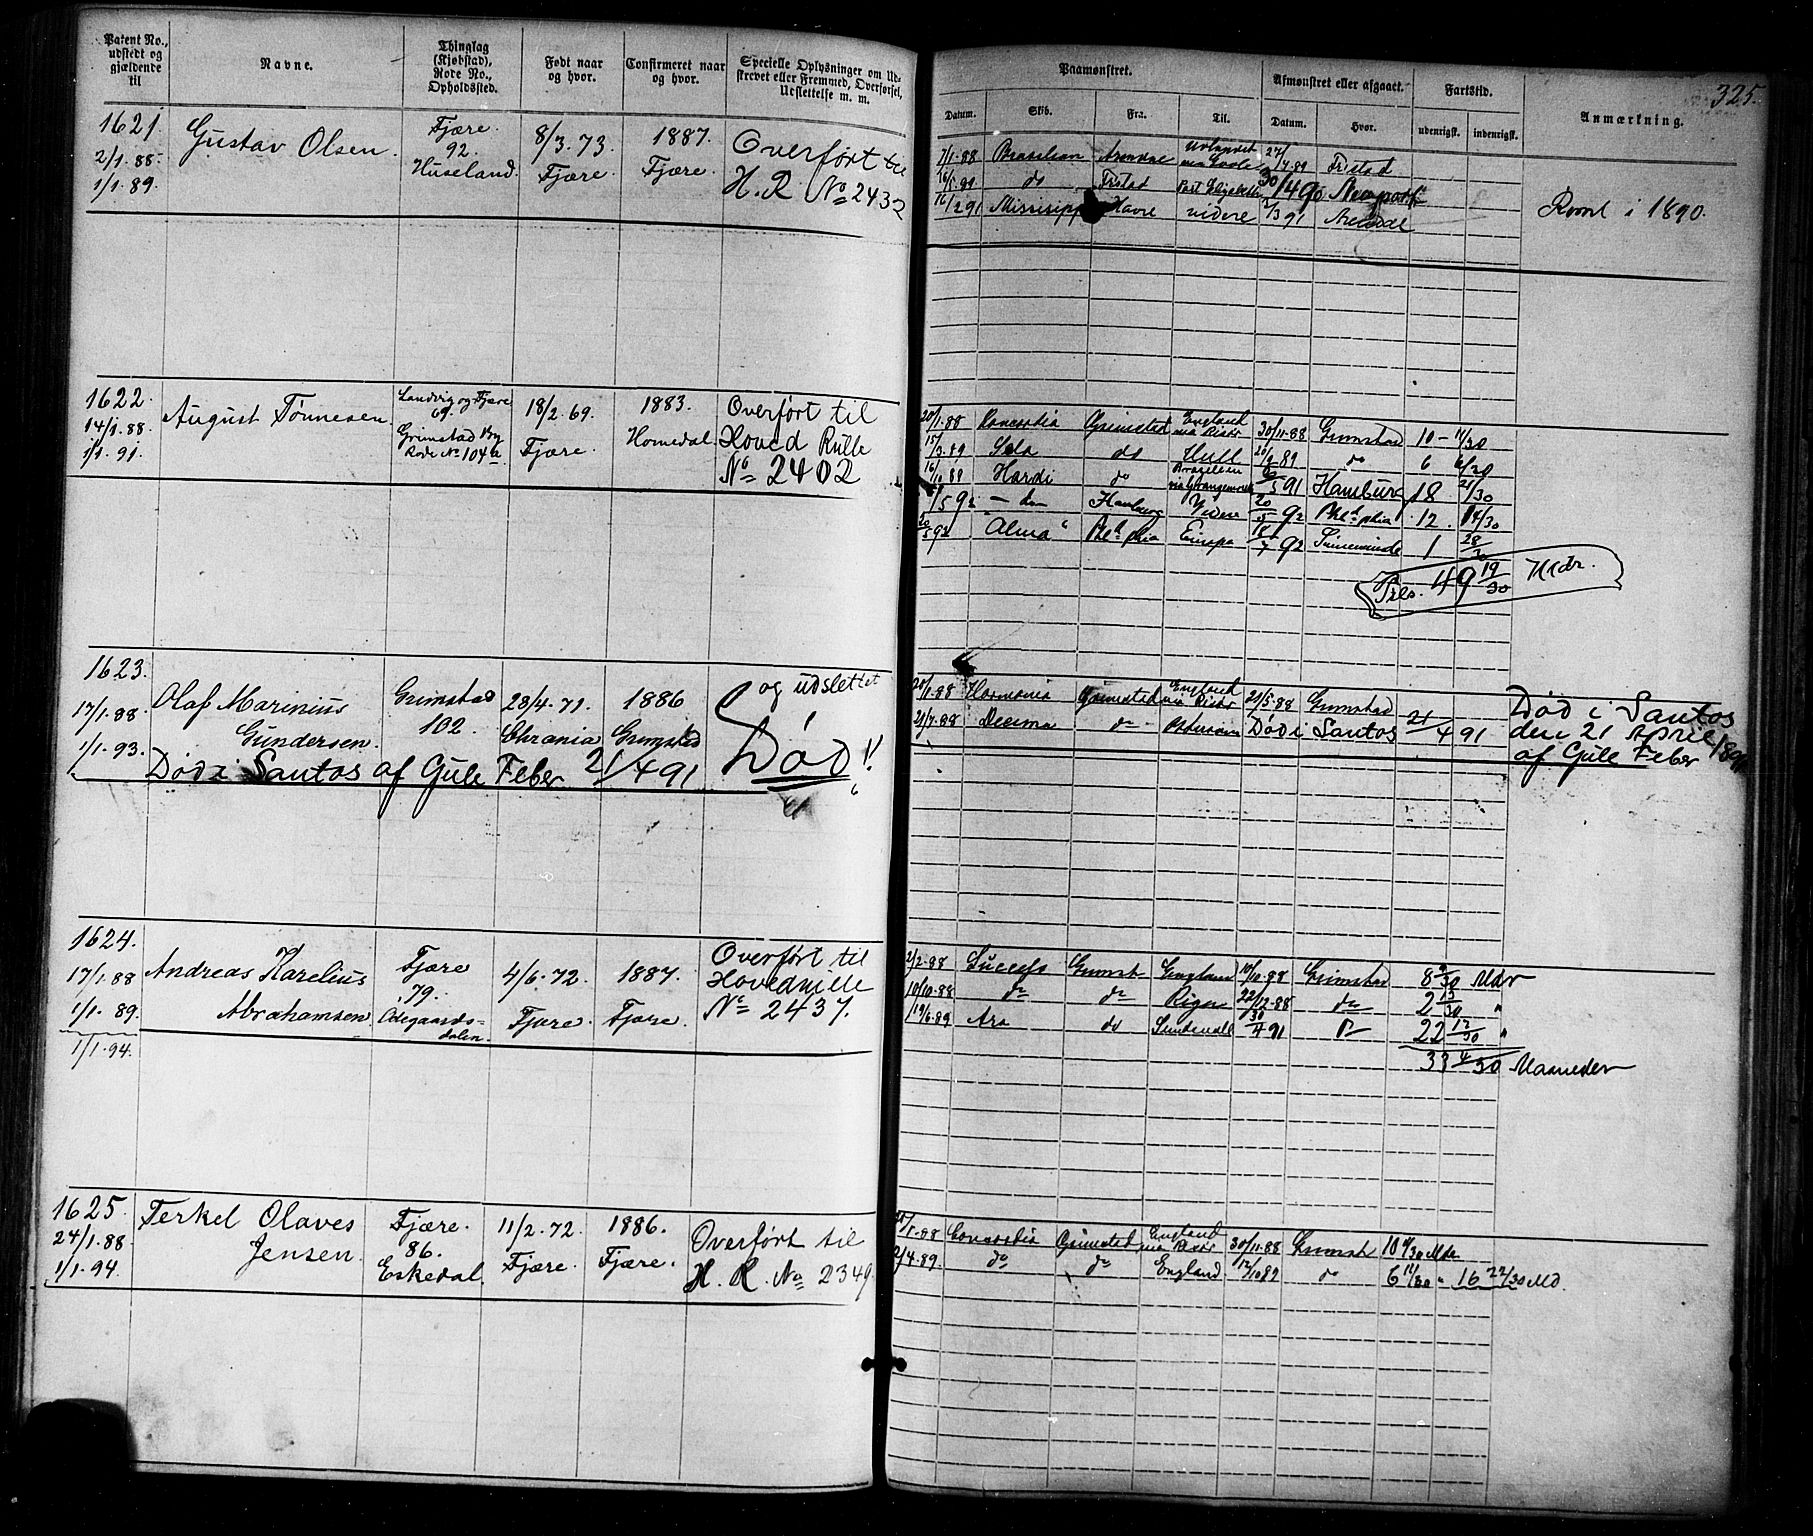 325.
Patent No., udstedt og gjældende til
Navne.
Thinglag (Kjøbstad), Rode No., Opholdssted.
Født naar og hvor.
Confirmeret naar og hvor.
Specielle Oplysninger om Udskrevet eller Fremmed, Overførsel, Udslettelse m. m.
Paamønstret.
Afmønstret eller afgaaet.
Fartstid.
Anmærkning.
Datum. Skib. Fra. Til. Datum. Hvor. udenrigsk. indenrigsk.
1621.
2/1.88.
1/1.89.
Gustav Olsen.
Fjære.
92.
Huseland.
8/3.73.
Fjære.
1887.
Fjære.
Overført til
H.R No 2432
7/1.88 Brasilian Arendal Udlandet via 27/4.89 Fristad
16/5.89 do Fristad Port Elizabeth 30/4 90 Newport
16/2 91 Missisippi Havre videre 2/3 91 Arendal
Romt i 1890.
1622.
14/1.88.
1/1.91.
August Tønnesen
Landvig og Fjære
69.
Grimstad By
Rode No 104a
18/2.69.
Fjære.
1883.
Homedal
Overført til
Hoved Rulle
No 2402
20/1.88 Concordia Grimstad England via Risør 30/11.88 Grimstad 10 - 11/30
15/3.89 Sela do Hull 20/9 89 do 6 6/30
16/10 89 Hardi do 6/5 91 Hamburg 18 21/30
/5 92 - do - Hamburg Videre 20/5 92 Phl.d.phia 12. 14/30
20/5 92 Alma Phl.d.phia Europa 18/7 92 1 28/30
Tils. 49 19/30 Mdr.
1623.
17/1.88.
1/1.93.
Olaf Marinius
Gundersen.
Grimstad
102.
28/4.71.
Chrania
1886
Grimstad
og udslettet
Død!!
Død i Santos af Gule Feber 21/4 91
20/1.88 Harmonia Grimstad England via Risør 21/5.88 Grimstad
21/7.88 Decima do Død i Santos 21/4 91
Død i Santos
den 21 April 1891
af Gule Feber
1624.
17/1.88
1/1.89.
1/1.94.
Andreas Karelius
Abrahamsen
Fjære
79.
Ødegaards-
dalen.
4/6.72.
Fjære.
1887.
Fjære.
Overført til
Hovedrulle
No 2437.
2/2.88 Success Grimst England 10/10.88 Grimstad 8 9/30 Mdr
10/10.88 do do Riga 22/12.88 do 2 13/30 "
19/6.89 Ara do Sundsvall 30/4 91 do 22 12/30 "
33 4/30 Maaneder
1625.
24/1.88
1/1.94.
Terkel Olaves
Jensen.
Fjære.
86.
Eskedal
11/2.72.
Fjære.
1886.
Fjære.
Overført til
H. R. No 2349.
/1.88 Concordia Grimstad England via Risør 30/11.88 Grimst 10 11/30 Mdr
2/4.89. do do England 12/10 89 do 6 11/30 " 16 22/30 Md.